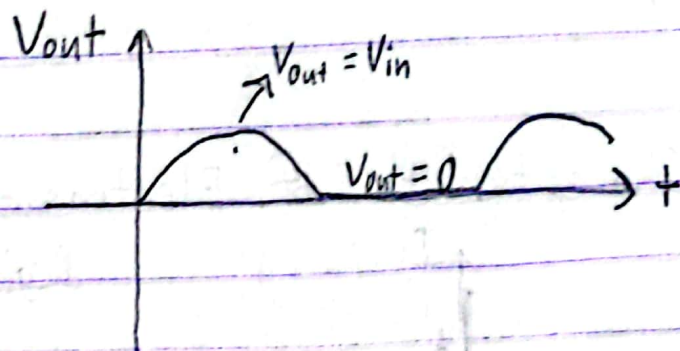 Vout
Vout = Vin
Vout = 0
t